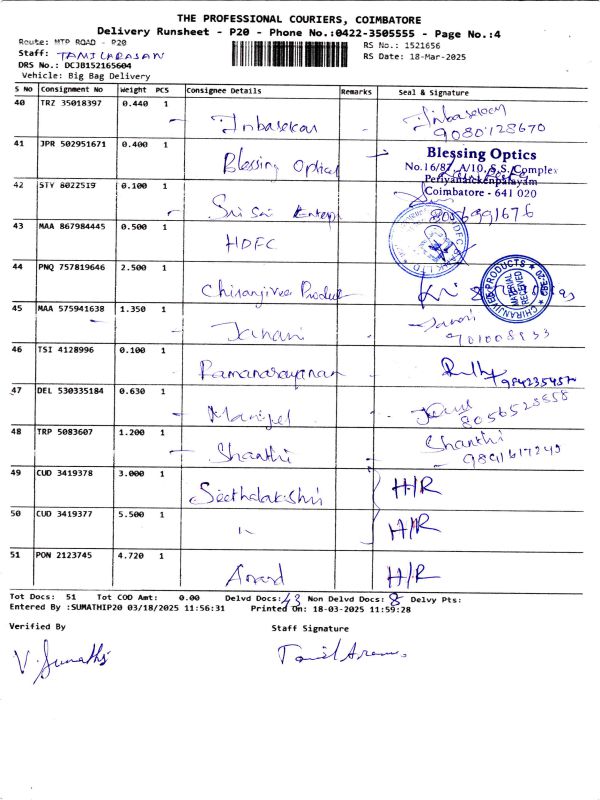 THE PROFESSIONAL COURIERS, COIMBATORE
Delivery Runsheet - P20 - Phone No.:0422-3505555 - Page No.:4
Route: MTP ROAD - P20
RS No.: 1521656
Staff: TAMILARASAN
RS Date: 18-Mar-2025
DRS No.: DCJB152165604
Vehicle: Big Bag Delivery
S No Consignment No Weight PCS Consignee Details Remarks Seal & Signature
40 TRZ 35018397 0.440 1 Inbasekar Inbasekar
9080128670
41 JPR 502951671 0.400 1 Blessing Optical
Blessing Optics
No.16/87, A/10, S.S. Complex
Periyanaickenpalayam
Coimbatore - 641 020
42 STY 8022519 0.100 1 Sri Sai Enterp
8056991676
43 MAA 867984445 0.500 1 HDFC
HDFC BANK LTD
44 PNQ 757819646 2.500 1 Chiranjivee Product
CHIRANJIVEE PRODUCTS
MATERIAL RECEIVED
45 MAA 575941638 1.350 1 Janani Janani
46 TSI 4128996 0.100 1 Ramanarayanan
47 DEL 530335184 0.630 1
8056528558
48 TRP 5083607 1.200 1 Shanthi Shanthi
49 CUD 3419378 3.000 1 Seethalakshmi H/R
50 CUD 3419377 5.500 1 " H/R
51 PON 2123745 4.720 1 Anand H/R
Tot Docs: 51 Tot COD Amt: 0.00 Delvd Docs: 43 Non Delvd Docs: 8 Delvy Pts:
Entered By :SUMATHIP20 03/18/2025 11:56:31 Printed On: 18-03-2025 11:59:28
Verified By Staff Signature
V. Sumathi